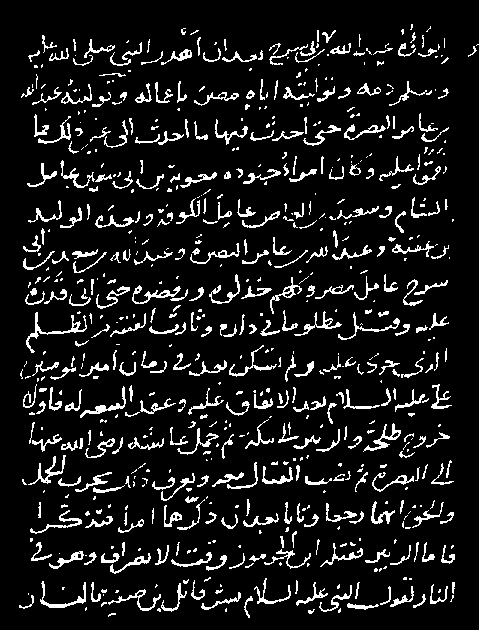 ايواؤه عبد الله بن ابي سرح بعد ان أهدر النبي صلى الله عليه
وسلم دمه وتوليته اياه مصر باعماله وتوليته عبد الله
بن عامر البصرة حتى احدث فيها ما احدث الى غير ذلك مما
نقموا عليه وكان امراء جنوده معوية بن ابي سفين عامل
الشام وسعيد بن العاص عامل الكوفة وبعده الوليد
بن عقبة وعبد الله بن عامر البصرة وعبد الله بن سعد بن ابي
سرح عامل مصر وكلهم خذلوه ورفضوه حتى اتى قدره
عليه وقتل مظلوما في داره وثارت الفتنة من الظلم
الذي جرى عليه ولم تسكن بعد وفي زمان أمير المومنين
علي عليه السلام بعد الاتفاق عليه وعقد البيعه له فاوله
خروج طلحة والزبير الى مكة ثم حمل عايشه رضي الله عنها
الى البصرة ثم نصب القتال معه ويعرف ذلك بحرب الجمل
والحق انهما رجعا وتابا بعد ان ذكرهما امرا فتذكرا
فاما الزبير فقتله ابن الجرموز وقت الانصراف وهو في
النار لقول النبي عليه السلام بشر قاتل بن صفية بالنار